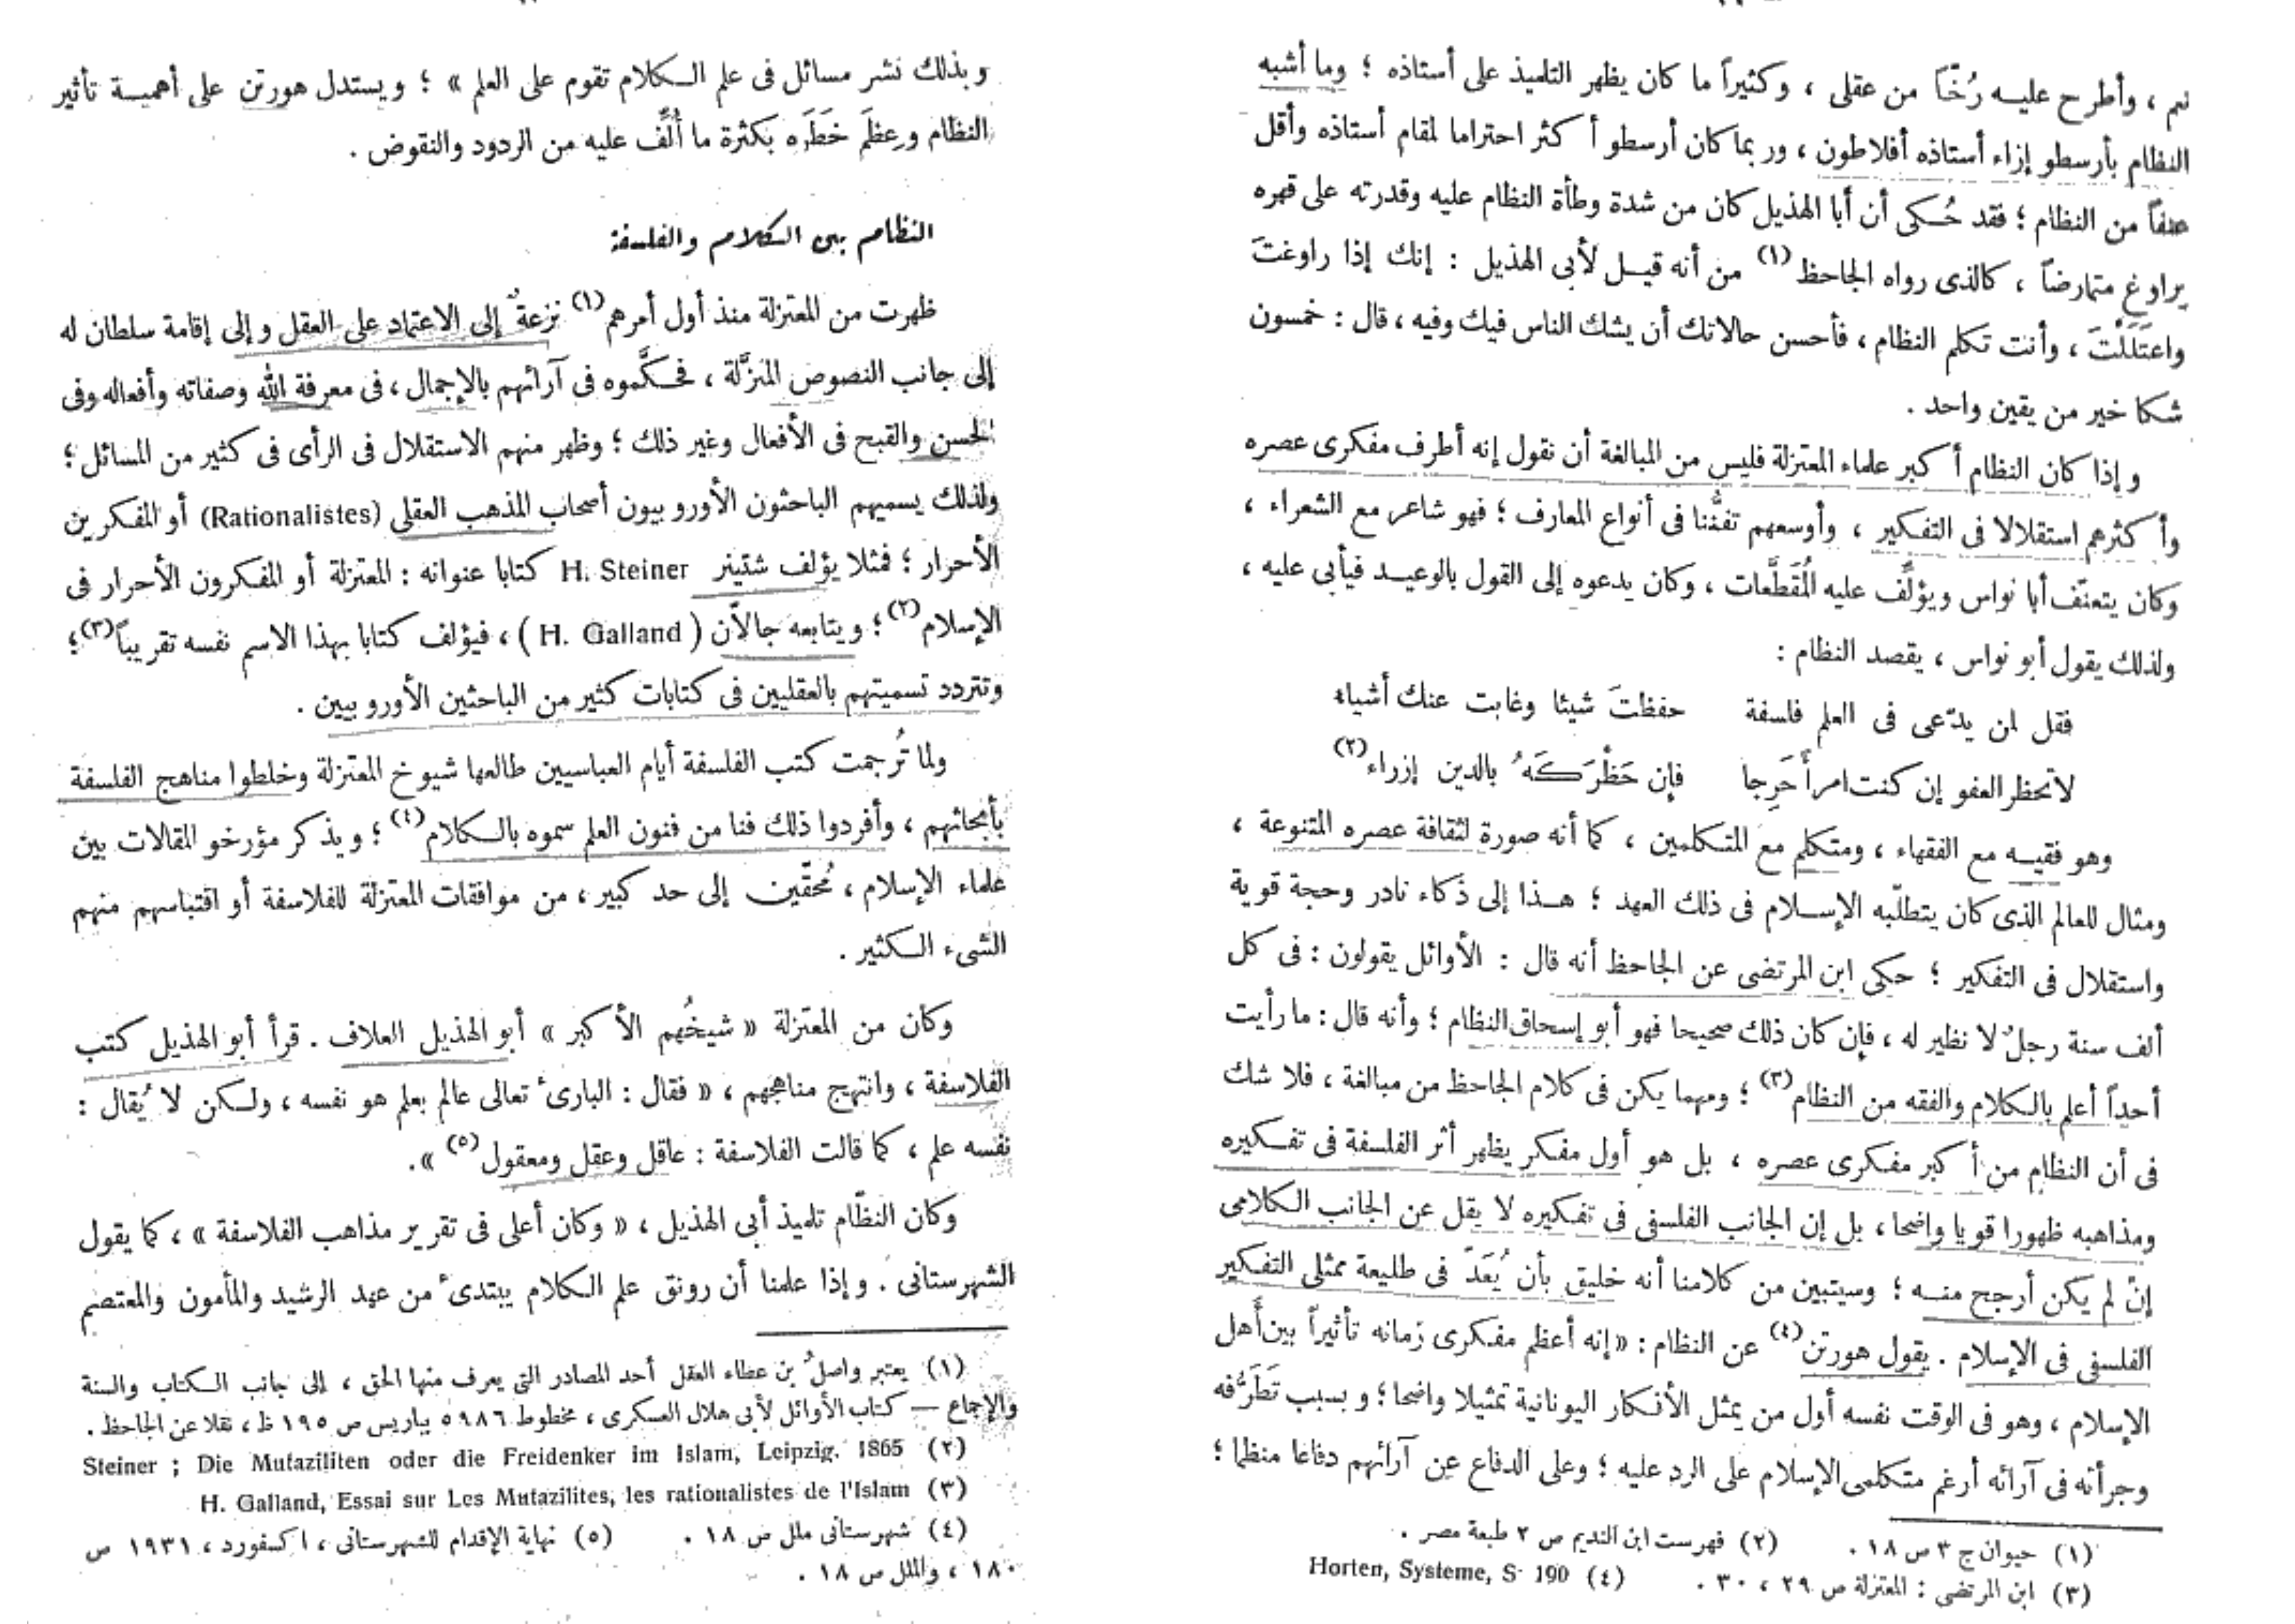 نعم ، وأطرح عليه رُخًّا من عقلى ، وكثيراً ما كان يظهر التلميذ على أستاذه ؛ وما أشبه
النظام بأرسطو إزاء أستاذه أفلاطون ، وربما كان أرسطو أكثر احتراما لمقام أستاذه وأقل
عنفاً من النظام ؛ فقد حُكى أن أبا الهذيل كان من شدة وطأة النظام عليه وقدرته على قهره
يراوغ متمارضاً ، كالذى رواه الجاحظ (١) من أنه قيل لأبى الهذيل : إنك إذا راوغتَ
واعتَلَلْتَ ، وأنت تكلم النظام ، فأحسن حالاتك أن يشك الناس فيك وفيه ، قال : خمسون
شكا خير من يقين واحد .
وإذا كان النظام أكبر علماء المعتزلة فليس من المبالغة أن نقول إنه أطرف مفكرى عصره
وأكثرهم استقلالا فى التفكير ، وأوسعهم تفنُّنا فى أنواع المعارف ؛ فهو شاعر مع الشعراء ،
وكان يتعنّف أبا نواس ويؤلِّف عليه المُقَطَّعات ، وكان يدعوه إلى القول بالوعيد فيأبى عليه ،
ولذلك يقول أبو نواس ، يقصد النظام :
فقل لمن يدّعى فى العلم فلسفة حفظتَ شيئا وغابت عنك أشياء
لا تحظر العفو إن كنت امرأً حَرِجا فإن حَظْرَكَهُ بالدين إزراء (٢)
وهو فقيه مع الفقهاء ، ومتكلم مع المتكلمين ، كما أنه صورة لثقافة عصره المتنوعة ،
ومثال للعالم الذى كان يتطلّبه الإسلام فى ذلك العهد ؛ هذا إلى ذكاء نادر وحجة قوية
واستقلال فى التفكير ؛ حكى ابن المرتضى عن الجاحظ أنه قال : الأوائل يقولون : فى كل
ألف سنة رجلٌ لا نظير له ، فإن كان ذلك صحيحا فهو أبو إسحاق النظام ؛ وأنه قال : ما رأيت
أحداً أعلم بالكلام والفقه من النظام (٣) ؛ ومهما يكن فى كلام الجاحظ من مبالغة ، فلا شك
فى أن النظام من أكبر مفكرى عصره ، بل هو أول مفكر يظهر أثر الفلسفة فى تفكيره
ومذاهبه ظهورا قويا واضحا ، بل إن الجانب الفلسفى فى تفكيره لا يقل عن الجانب الكلامى
إنْ لم يكن أرجح منه ؛ وسيتبين من كلامنا أنه خليق بأن يُعَدّ فى طليعة ممثلى التفكير
الفلسفى فى الإسلام . يقول هورتن (٤) عن النظام : « إنه أعظم مفكرى زمانه تأثيراً بين أهل
الإسلام ، وهو فى الوقت نفسه أول من يمثل الأفكار اليونانية تمثيلا واضحا ؛ وبسبب تَطَرُّفه
وجرأته فى آرائه أرغم متكلمى الإسلام على الرد عليه ؛ وعلى الدفاع عن آرائهم دفاعا منظما ؛
(١) حيوان ج ٣ ص ١٨ . (٢) فهرست ابن النديم ص ٢ طبعة مصر .
(٣) ابن المرتضى : المعتزلة ص ٢٩ ، ٣٠ . (٤) Horten, Systeme, S· 190
وبذلك نشر مسائل فى علم الكلام تقوم على العلم » ؛ ويستدل هورتن على أهمية تأثير
النظام وعِظَم خَطَره بكثرة ما أُلِّف عليه من الردود والنقوض .
النظام بين الكلام والفلسفة
ظهرت من المعتزلة منذ أول أمرهم (١) نزعةٌ إلى الاعتماد على العقل وإلى إقامة سلطان له
إلى جانب النصوص المنزَّلة ، فحكَّموه فى آرائهم بالإجمال ، فى معرفة الله وصفاته وأفعاله وفى
الحسن والقبح فى الأفعال وغير ذلك ؛ وظهر منهم الاستقلال فى الرأى فى كثير من المسائل ؛
ولذلك يسميهم الباحثون الأوروبيون أصحاب المذهب العقلى (Rationalistes) أو المفكرين
الأحرار ؛ فمثلا يؤلف شتينر H. Steiner كتابا عنوانه : المعتزلة أو المفكرون الأحرار فى
الإسلام (٢) ؛ ويتابعه جالاّن ( H. Galland ) ، فيؤلف كتابا بهذا الاسم نفسه تقريباً (٣) ؛
وتتردد تسميتهم بالعقليين فى كتابات كثير من الباحثين الأوروبيين .
ولما تُرجمت كتب الفلسفة أيام العباسيين طالعها شيوخ المعتزلة وخلطوا مناهج الفلسفة
بأبحاثهم ، وأفردوا ذلك فنا من فنون العلم سموه بالكلام (٤) ؛ ويذكر مؤرخو المقالات بين
علماء الإسلام ، مُحقّين إلى حد كبير ، من موافقات المعتزلة للفلاسفة أو اقتباسهم منهم
الشىء الكثير .
وكان من المعتزلة « شيخُهم الأكبر » أبو الهذيل العلاف . قرأ أبو الهذيل كتب
الفلاسفة ، وانتهج مناهجهم ، « فقال : البارىٴ تعالى عالم بعلم هو نفسه ، ولكن لا يُقال :
نفسه علم ، كما قالت الفلاسفة : عاقل وعقل ومعقول (٥) » .
وكان النظّام تلميذ أبى الهذيل ، « وكان أعلى فى تقرير مذاهب الفلاسفة » ، كما يقول
الشهرستانى . وإذا علمنا أن رونق علم الكلام يبتدىٴ من عهد الرشيد والمأمون والمعتصم
(١) يعتبر واصلُ بن عطاء العقل أحد المصادر التى يعرف منها الحق ، إلى جانب الكتاب والسنة
والإجماع — كتاب الأوائل لأبى هلال العسكرى ، مخطوط ٥٩٨٦ بباريس ص ١٩٥ ظ ، نقلا عن الجاحظ .
(٢) Steiner ; Die Mutaziliten oder die Freidenker im Islam, Leipzig. 1865
(٣) H. Galland, Essai sur Les Mutazilites, les rationalistes de l'Islam
(٤) شهرستانى ملل ص ١٨ . (٥) نهاية الإقدام للشهرستانى ، اكسفورد ، ١٩٣١ ص
١٨٠ ، والملل ص ١٨ .